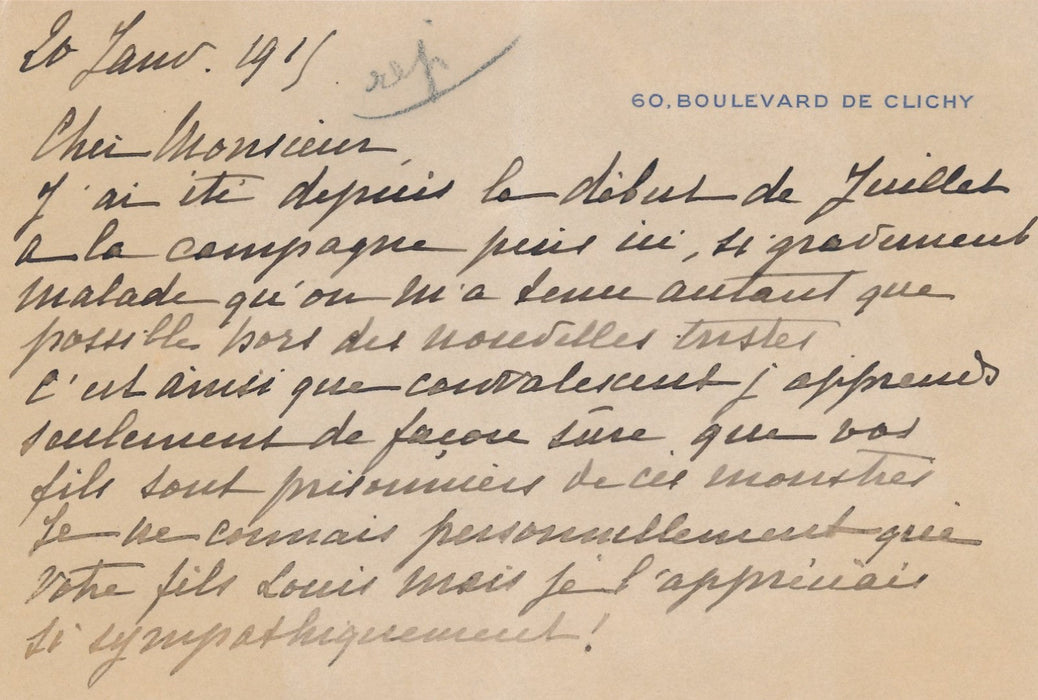 20 Janv. 1915
rep
60, BOULEVARD DE CLICHY
Cher Monsieur,
J'ai été depuis le début de Juillet
a la campagne puis ici, si gravement
malade qu'on m'a tenu autant que
possible hors des nouvelles tristes
C'est ainsi que convalescent j'apprends
seulement de façon sûre que vos
fils sont prisonniers de ces monstres
Je ne connais personnellement que
votre fils Louis mais je l'appréciais
si sympathiquement!